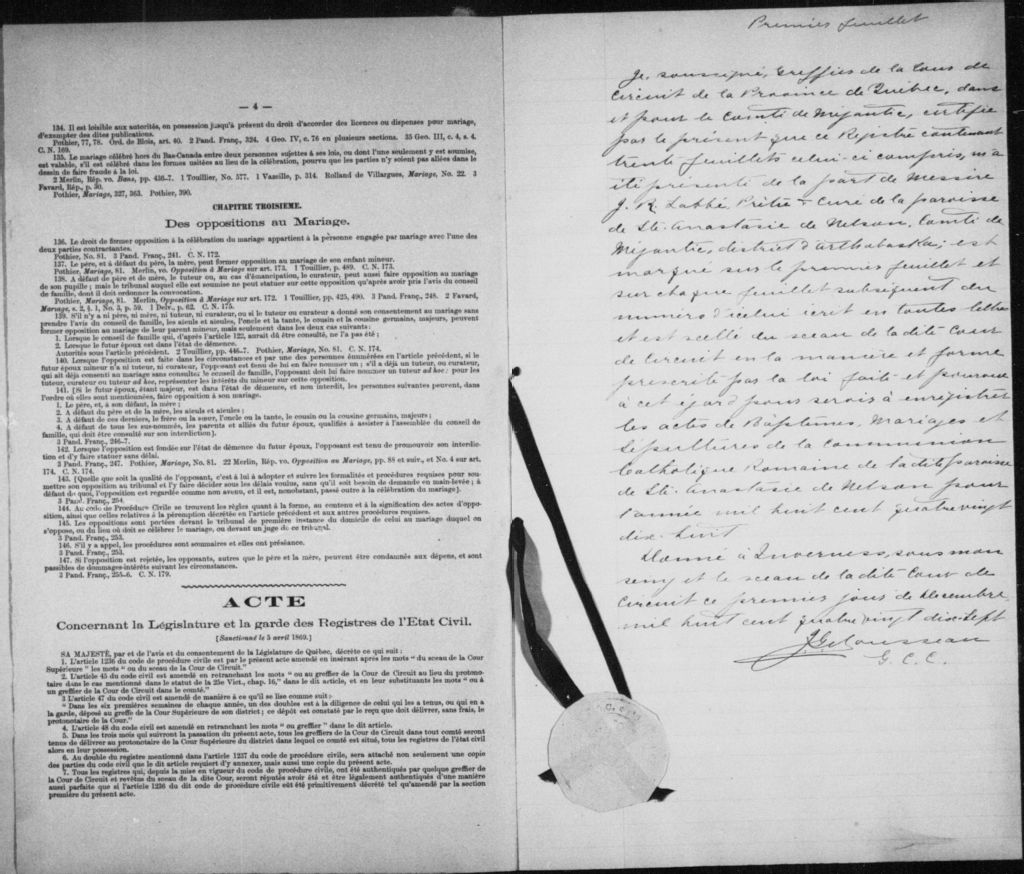 — 4 —
134. Il est loisible aux autorités, en possession jusqu'à présent du droit d'accorder des licences ou dispenses pour mariage,
d'exempter des dites publications.
Pothier, 77, 78. Ord. de Blois, art. 40. 2 Pand. Franç., 324. 4 Geo. IV, c. 76 en plusieurs sections. 35 Geo. III, c. 4, s. 4.
C. N. 169.
135. Le mariage célébré hors du Bas-Canada entre deux personnes sujettes à ses lois, ou dont l'une seulement y est soumise,
est valable, s'il est célébré dans les formes usitées au lieu de la célébration, pourvu que les parties n'y soient pas allées dans le
dessin de faire fraude à la loi.
2 Merlin, Rép. vo. Bans, pp. 436-7. 1 Touillier, No. 577. 1 Vazeille, p. 314. Rolland de Villargues, Mariage, No. 22. 3
Favard, Rép., p. 50.
Pothier, Mariage, 327, 363. Pothier, 390.
CHAPITRE TROISIEME.
Des oppositions au Mariage.
136. Le droit de former opposition à la célébration du mariage appartient à la personne engagée par mariage avec l'une des
deux parties contractantes.
Pothier, No. 81. 3 Pand. Franç., 241. C. N. 172.
137. Le père, et à défaut du père, la mère, peut former opposition au mariage de son enfant mineur.
Pothier, Mariage, 81. Merlin, vo. Opposition à Mariage sur art. 173. 1 Touillier, p. 489. C. N. 173.
138. A défaut de père et de mère, le tuteur ou, au cas d'émancipation, le curateur, peut aussi faire opposition au mariage
de son pupille; mais le tribunal auquel elle est soumise ne peut statuer sur cette opposition qu'après avoir pris l'avis du conseil
de famille, dont il doit ordonner la convocation.
Pothier, Mariage, 81. Merlin, Opposition à Mariage sur art. 172. 1 Touillier, pp. 425, 490. 3 Pand. Franç., 248. 2 Favard,
Mariage, s. 2, § 1, No. 3, p. 59. 1 Delv., p. 62. C. N. 175.
139. S'il n'y a ni père, ni mère, ni tuteur, ni curateur, ou si le tuteur ou curateur a donné son consentement au mariage sans
prendre l'avis du conseil de famille, les aïeuls et aïeules, l'oncle et la tante, le cousin et la cousine germains, majeurs, peuvent
former opposition au mariage de leur parent mineur, mais seulement dans les deux cas suivants:
1. Lorsque le conseil de famille qui, d'après l'article 122, aurait dû être consulté, ne l'a pas été;
2. Lorsque le futur époux est dans l'état de démence.
Autorités sous l'article précédent. 2 Touillier, pp. 446-7. Pothier, Mariage, No. 81. C. N. 174.
140. Lorsque l'opposition est faite dans les circonstances et par une des personnes énumérées en l'article précédent, si le
futur époux mineur n'a ni tuteur, ni curateur, l'opposant est tenu de lui en faire nommer un; s'il a déjà un tuteur, ou curateur,
qui ait déjà consenti au mariage sans consulter le conseil de famille, l'opposant doit lui faire nommer un tuteur ad hoc: pour les
tuteur, curateur ou tuteur ad hoc, représenter les intérêts du mineur sur cette opposition.
141. [Si le futur époux, étant majeur, est dans l'état de démence, et non interdit, les personnes suivantes peuvent, dans
l'ordre où elles sont mentionnées, faire opposition à son mariage.
1. Le père, et, à son défaut, la mère;
2. A défaut du père et de la mère, les aïeuls et aïeules;
3. A défaut de ces derniers, le frère ou la sœur, l'oncle ou la tante, le cousin ou la cousine germains, majeurs;
4. A défaut de tous les sus-nommés, les parents et alliés du futur époux, qualifiés à assister à l'assemblée du conseil de
famille, qui doit être consulté sur son interdiction].
3 Pand. Franç., 246-7.
142. Lorsque l'opposition est fondée sur l'état de démence du futur époux, l'opposant est tenu de promouvoir son interdic-
tion et d'y faire statuer sans délai.
3 Pand. Franç., 247. Pothier, Mariage, No. 81. 22 Merlin, Rép. vo. Opposition au Mariage, pp. 88 et suiv., et No. 4 sur art.
174. C. N. 174.
143. [Quelle que soit la qualité de l'opposant, c'est à lui à adopter et suivre les formalités et procédures requises pour sou-
mettre son opposition au tribunal et l'y faire décider sous les délais voulus, sans qu'il soit besoin de demande en main-levée; à
défaut de quoi, l'opposition est regardée comme non avenu, et il est, nonobstant, passé outre à la célébration du mariage].
3 Pand. Franç., 254.
144. Au code de Procédure Civile se trouvent les règles quant à la forme, au contenu et à la signification des actes d'oppo-
sition, ainsi que celles relatives à la péremption décrétée en l'article précédent et aux autres procédures requises.
145. Les oppositions sont portées devant le tribunal de première instance du domicile de celui au mariage duquel on
s'oppose, ou du lieu où doit se célébrer le mariage, ou devant un juge de ce tribunal.
3 Pand. Franç., 253.
146. S'il y a appel, les procédures sont sommaires et elles ont préséance.
3 Pand. Franç., 253.
147. Si l'opposition est rejetée, les opposants, autres que le père et la mère, peuvent être condamnés aux dépens, et sont
passibles de dommages-intérêts suivant les circonstances.
3 Pand. Franç., 255-6. C. N. 179.
ACTE
Concernant la Législature et la garde des Registres de l'Etat Civil.
[Sanctionné le 5 avril 1869.]
SA MAJESTÉ, par et de l'avis et du consentement de la Législature de Québec, décrète ce qui suit:
1. L'article 1236 du code de procédure civile est par le présent acte amendé en insérant après les mots "du sceau de la Cour
Supérieure" les mots "ou du sceau de la Cour de Circuit."
2. L'article 45 du code civil est amendé en retranchant les mots "ou au greffier de la Cour de Circuit au lieu du protono-
taire dans le cas mentionné dans le statut de la 25e Vict., chap. 16," dans le dit article, et en leur substituant les mots "ou à
un greffier de la Cour de Circuit dans le comté."
3 L'article 47 du code civil est amendé de manière à ce qu'il se lise comme suit:
"Dans les six premières semaines de chaque année, un des doubles est à la diligence de celui qui les a tenus, ou qui en a
la garde, déposé au greffe de la Cour Supérieure de son district; ce dépôt est constaté par le reçu que doit délivrer, sans frais, le
protonotaire de la Cour."
4. L'article 48 du code civil est amendé en retranchant les mots "ou greffier" dans le dit article.
5. Dans les trois mois qui suivront la passation du présent acte, tous les greffiers de la Cour de Circuit dans tout comté seront
tenus de délivrer au protonotaire de la Cour Supérieure du district dans lequel ce comté est situé, tous les registres de l'état civil
alors en leur possession.
6. Au double du registre mentionné dans l'article 1237 du code de procédure civile, sera attaché non seulement une copie
des parties du code civil que le dit article requiert d'y annexer, mais aussi une copie du présent acte.
7. Tous les registres qui, depuis la mise en vigueur du code de procédure civile, ont été authentiqués par quelque greffier de
la Cour de Circuit et revêtus du sceau de la dite Cour, seront réputés avoir été et être légalement authentiqués d'une manière
aussi parfaite que si l'article 1236 du dit code de procédure civile eût été primitivement décrété tel qu'amendé par la section
première du présent acte.
Premier feuillet
Je, soussigné, Greffier de la Cour de
Circuit de la Province de Québec, dans
et pour le Comté de Mégantic, certifie
par le présent que ce Registre contenant
trente feuillets celui-ci compris, m'a
été présenté de la part de Messire
J. R. Labbé, Prêtre & Curé de la paroisse
de Ste. Anastasie de Nelson, Comté de
Mégantic, district d'Arthabaska; est
marqué sur le premier feuillet et
sur chaque feuillet subséquent du
numéro d'icelui écrit en toutes lettres
et est scellé du sceau de la dite Cour
de Circuit en la manière et forme
prescrite par la loi faite et pourvue
à cet égard pour servir à enregistrer
les actes de Baptêmes, Mariages et
Sépultures de la Communion
Catholique Romaine de la dite paroisse
de Ste. Anastasie de Nelson pour
l'année mil huit cent quatre vingt
dix-huit
Donné à Inverness, sous mon
seing et le sceau de la dite Cour de
Circuit ce premier jour de décembre
mil huit cent quatre vingt dix-sept
G. C. C.